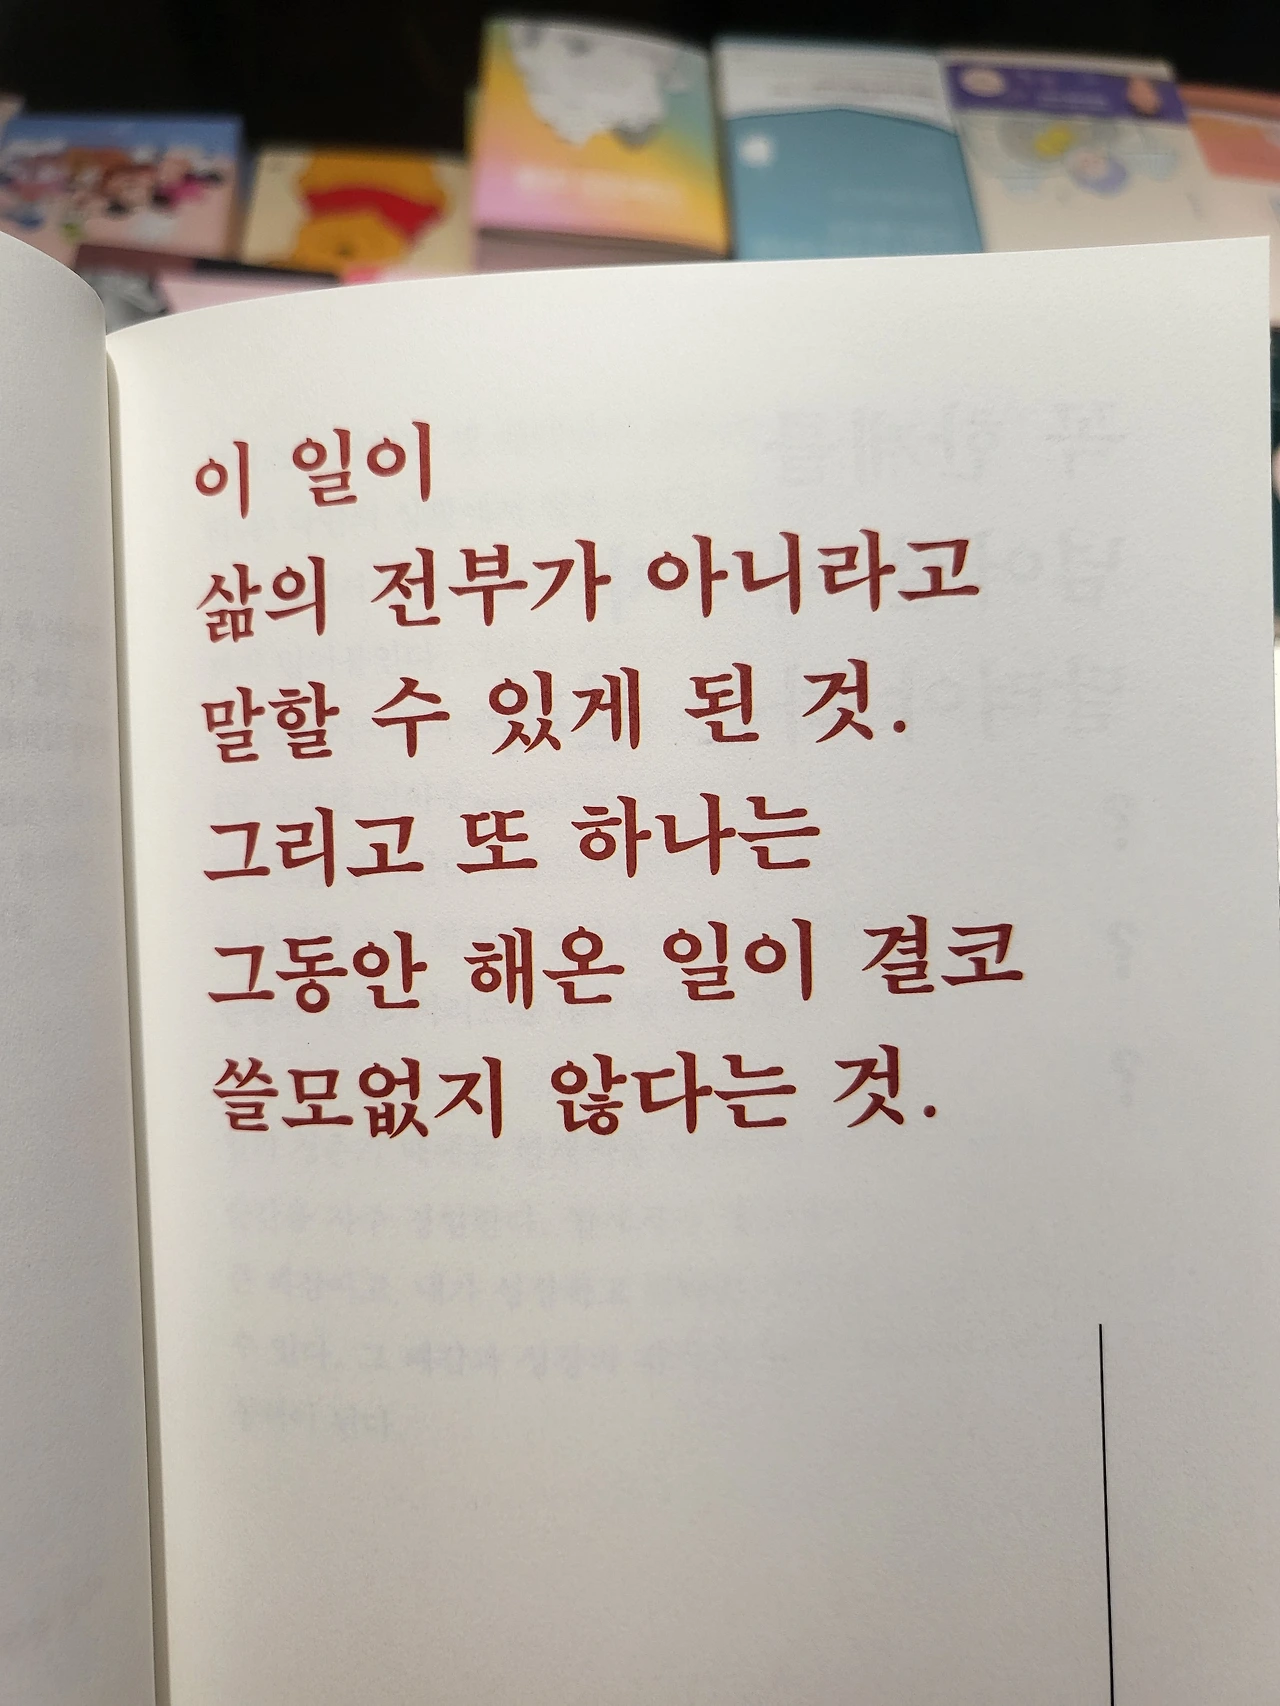 이 일이
삶의 전부가 아니라고
말할 수 있게 된 것.
그리고 또 하나는
그동안 해온 일이 결코
쓸모없지 않다는 것.